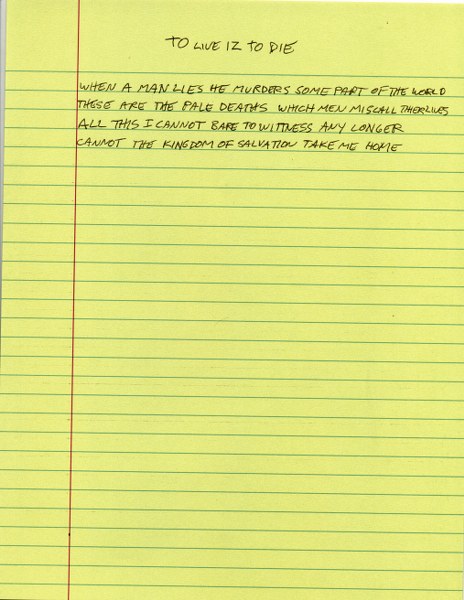 TO LIVE IZ TO DIE
WHEN A MAN LIES HE MURDERS SOME PART OF THE WORLD
THESE ARE THE PALE DEATHS WHICH MEN MISCALL THERE LIVES
ALL THIS I CANNOT BARE TO WITTNESS ANY LONGER
CANNOT THE KINGDOM OF SALVATION TAKE ME HOME